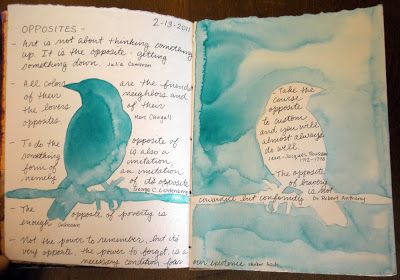 2-13-2011
OPPOSITES -
- Art is not about thinking something
up. It is the opposite - getting
something down. Julia Cameron
- All colors are the friends
of their neighbors and
the lovers of their
opposites. Marc Chagall
- To do the opposite of
something is also a
form of imitation,
namely an imitation
of its opposite.
George C. Lichtenberg
- The opposite of poverty is
enough unknown
- Not the power to remember, but it's
very opposite the power to forget, is a
necessary condition for our existence
Take the
course
opposite
to custom
and you will
almost always
do well.
Jean-Jacques Rousseau
1712-1778
The opposite
of bravery
is not
cowardice but conformity Dr. Robert Anthony